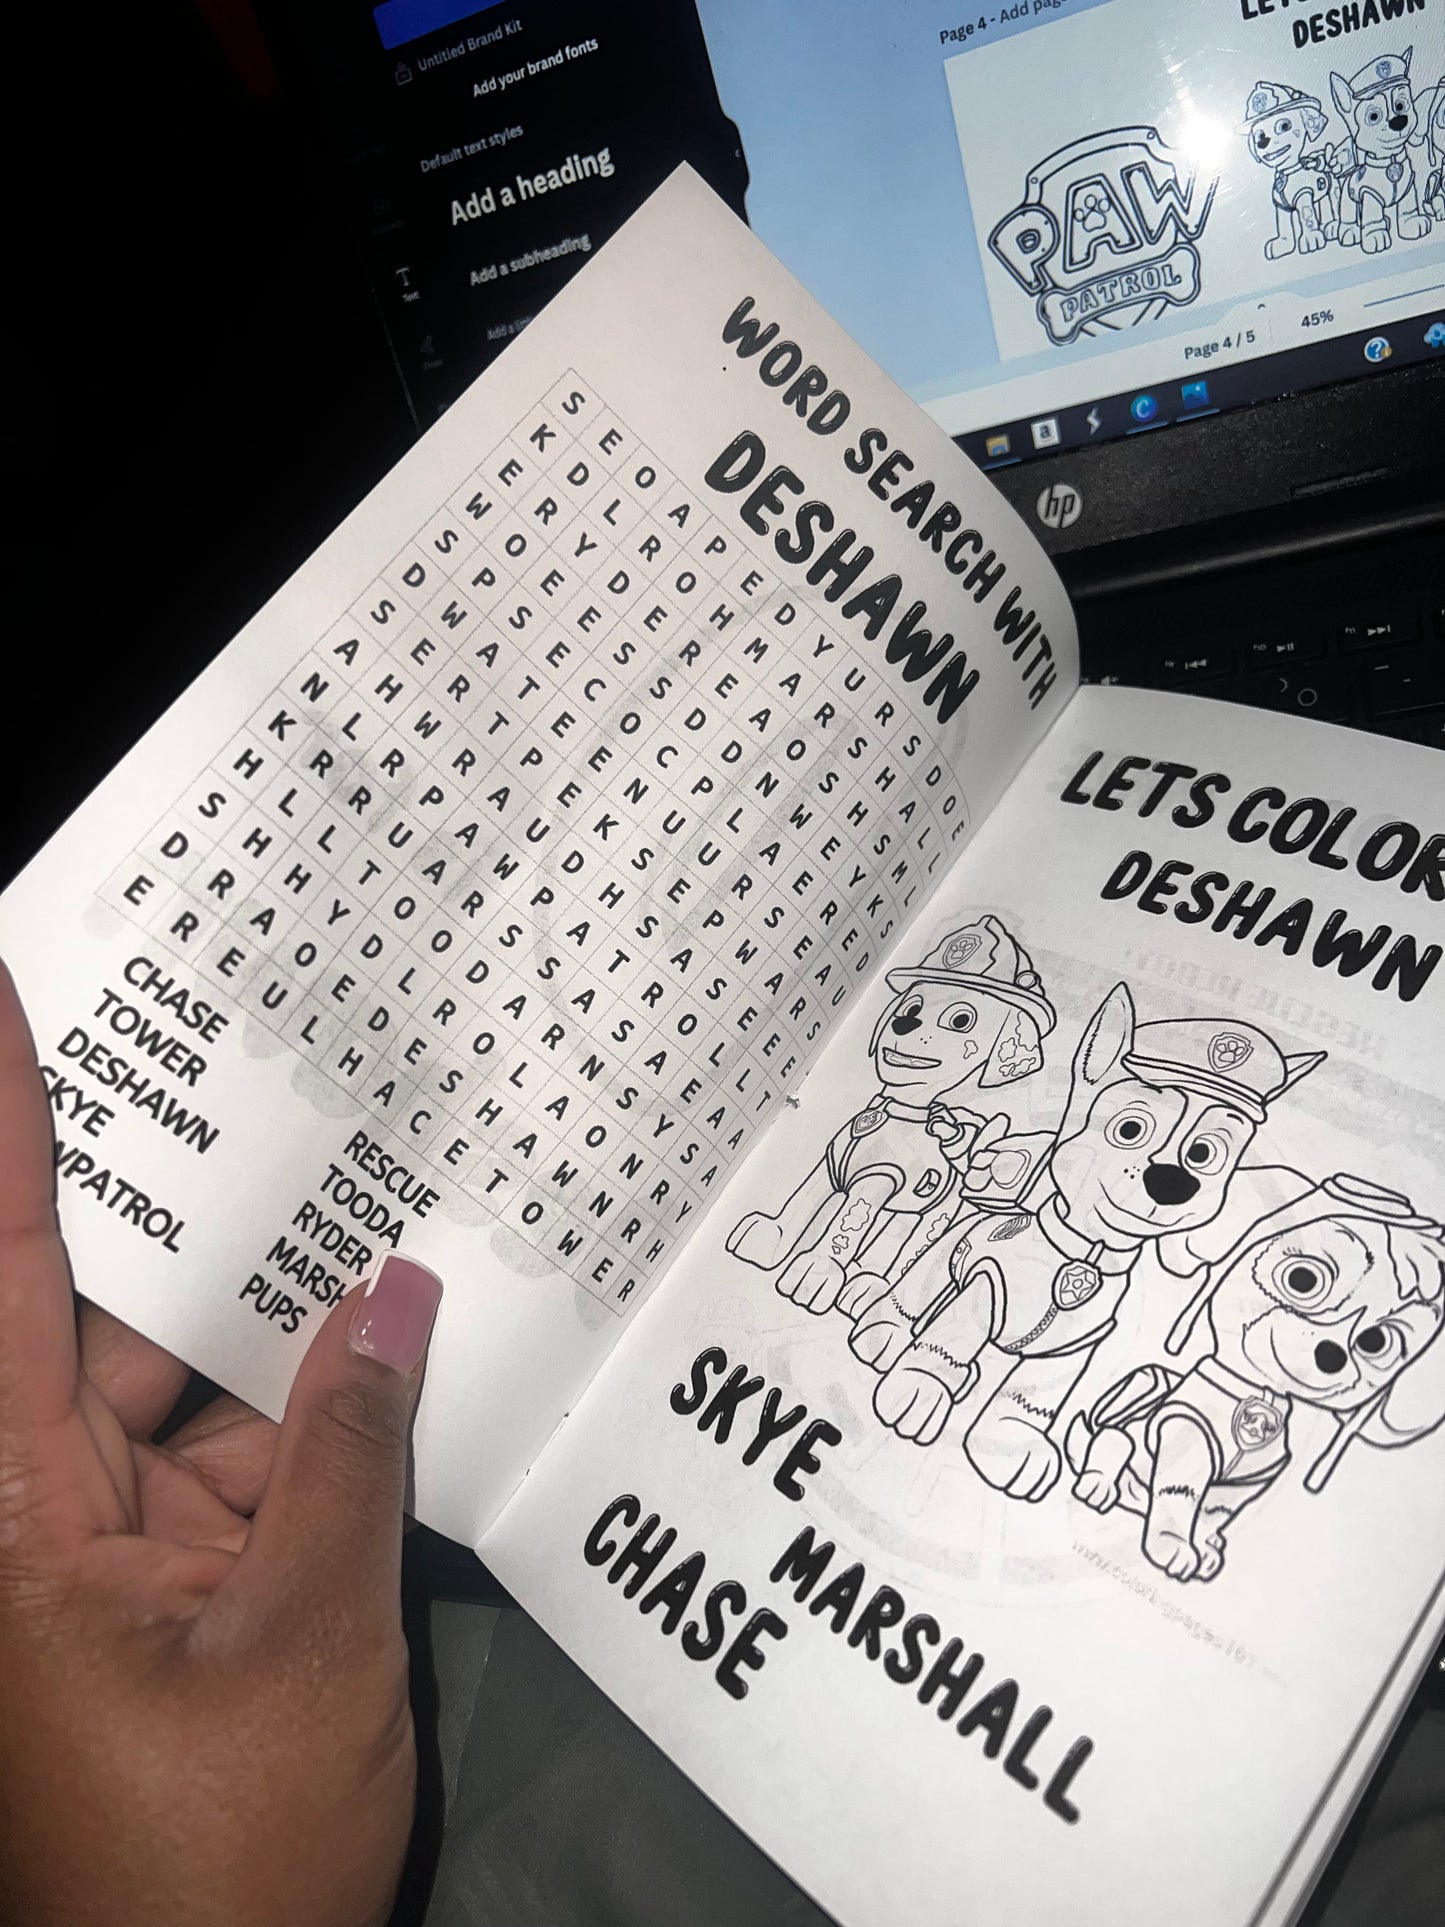 Untitled Brand Kit
Add your brand fonts
Default text styles
Add a heading
Add a subheading
Text
Page 4 - Add pag
DESHAWN
PAW
PATROL
Page 4 / 5
45%
hp
WORD SEARCH WITH
DESHAWN
S E O A P E D Y U R S D O E
K D L R O H M A R S H A L L
E R Y D E R E A O S H S M L
W O E E S S D D N W E Y K S
S P S E C O C P L A E R E D
D W A T E E N U U R S E A U
S E R T P E K S E P W A R S
A H W R A U D H S A S E E E
N L R P A W P A T R O L L T
K R R U A R S S A S A E A A
H L L T O O D A R N S Y S A
S H H Y D L R O L A O N R Y
D R A O E D E S H A W N R H
E R E U L H A C E T O W E R
CHASE
TOWER
DESHAWN
SKYE
WPATROL
RESCUE
TOODA
RYDER
MARSH
PUPS
LETS COLOR
DESHAWN
SKYE
MARSHALL
CHASE